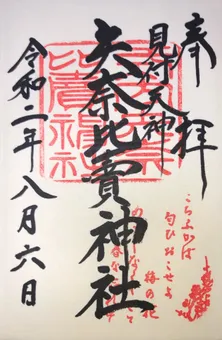 奉拝
見付天神
矢奈比賣神社
令和二年八月六日
こちふかば
匂ひおこせよ
梅の花